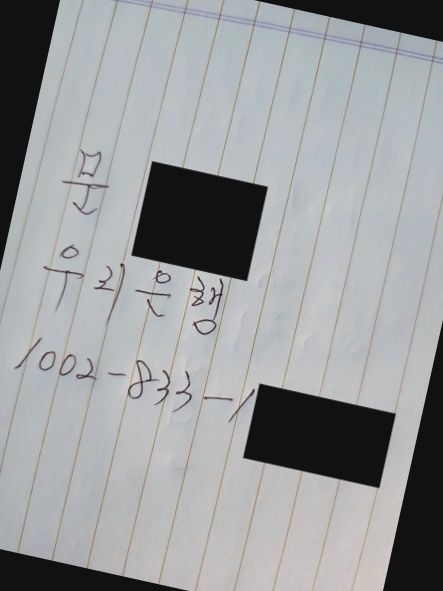 문
우리은행
1002-833-1